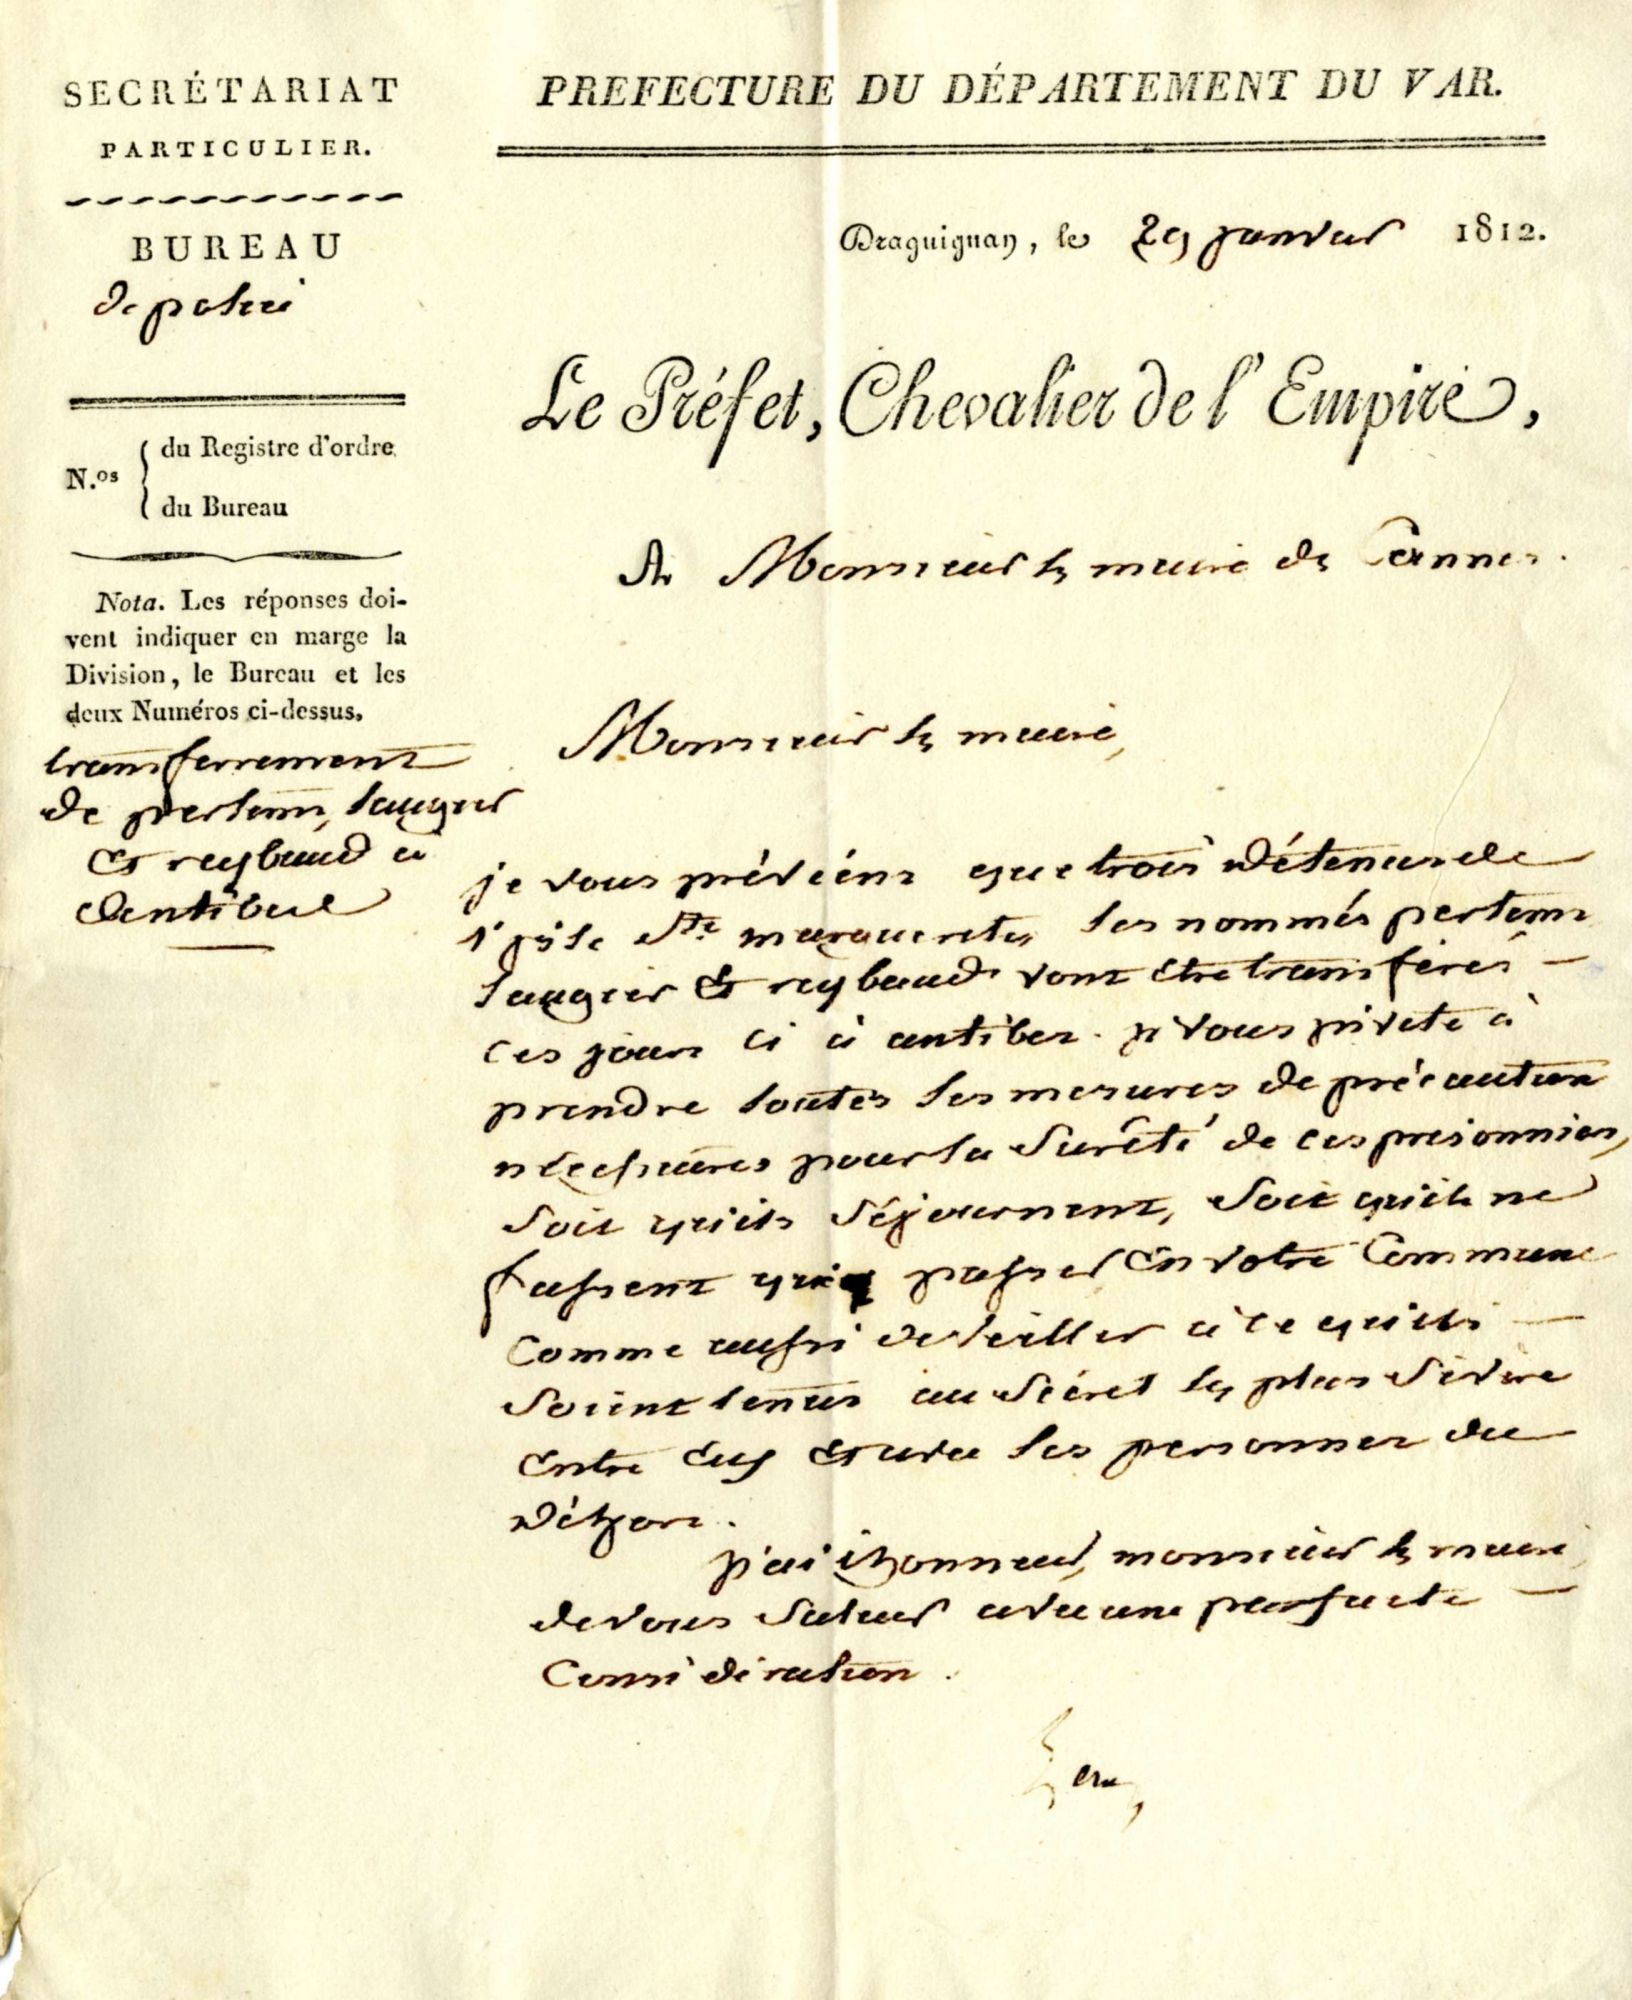 SECRÉTARIAT
PARTICULIER.
BUREAU
de police
N.os du Registre d'ordre
du Bureau
Nota. Les réponses doi-
vent indiquer en marge la
Division, le Bureau et les
deux Numéros ci-dessus.
transferrement
de pertemi, laugier
et reybaud à
dantibes
PREFECTURE DU DÉPARTEMENT DU VAR.
Draguignan, le 29 janvier 1812.
Le Préfet, Chevalier de l'Empire,
A Monsieur le maire de Cannes.
Monsieur le maire,
je vous préviens que trois détenus de
l'isle Ste. marguerite, les nommés
laugier et reybaud vont être transférés
ces jours ci à antibes. je vous invite à
prendre toutes les mesures de précaution
nécessaires pour la sûreté de ces prisonniers,
soit qu'ils séjournent, soit qu'ils ne
fassent que passer en votre Commune
Comme aussi de veiller à ce qu'ils
soient tenus au sécret le plus sévère
entre eux et avec les personnes du
déhors.
j'ai l'honneur, monsieur le maire,
de vous saluer avec une parfaite
Considération.